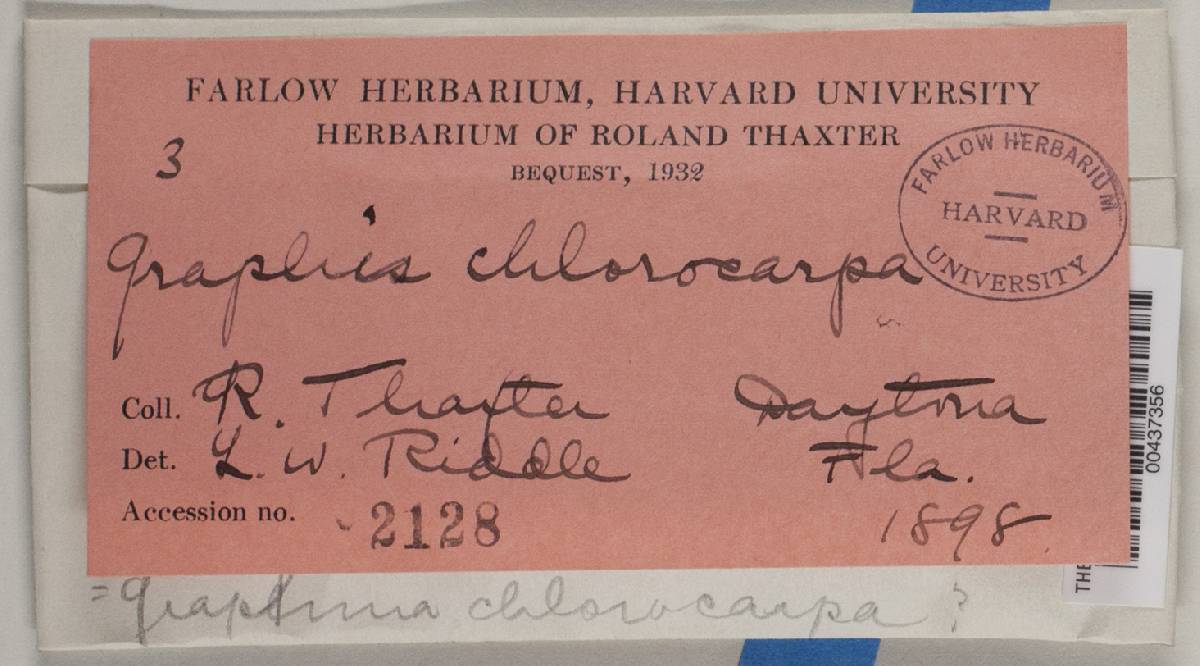 FARLOW HERBARIUM, HARVARD UNIVERSITY
HERBARIUM OF ROLAND THAXTER
BEQUEST, 1932
3
FARLOW HERBARIUM
HARVARD
UNIVERSITY
Graphis chlorocarpa
Coll. R. Thaxter Daytona
Det. L. W. Riddle Fla.
Accession no. 2128 1898.
= Graphina chlorocarpa ?
00437356
THE